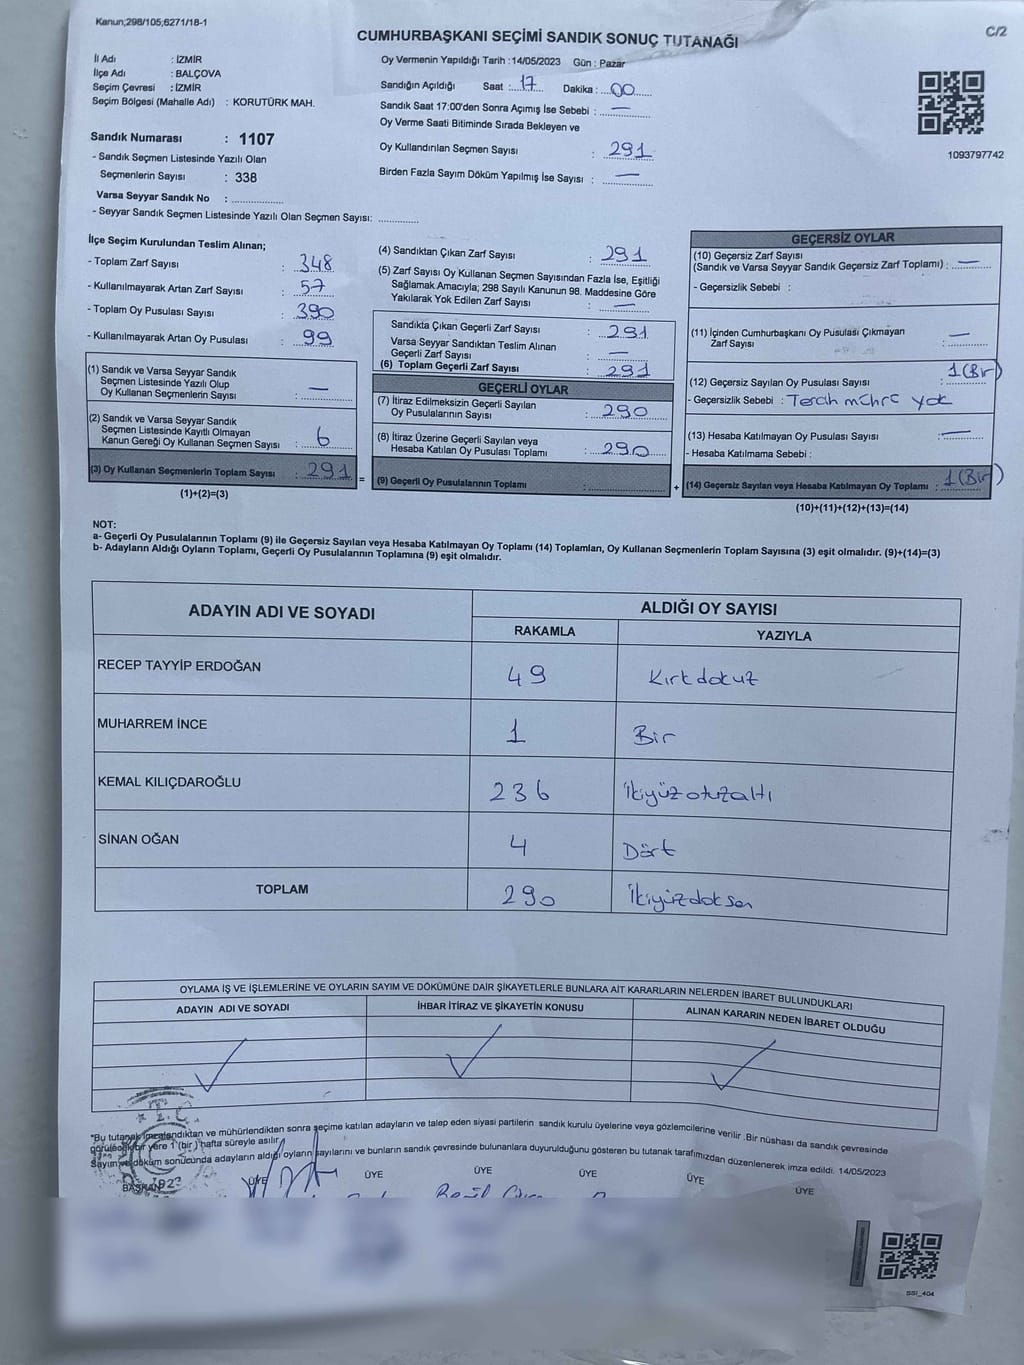 Kanun;298/105;6271/18-1
C/2
CUMHURBAŞKANI SEÇİMİ SANDIK SONUÇ TUTANAĞI
İl Adı : İZMİR
İlçe Adı : BALÇOVA
Seçim Çevresi : İZMİR
Seçim Bölgesi (Mahalle Adı) : KORUTÜRK MAH.
Sandık Numarası : 1107
- Sandık Seçmen Listesinde Yazılı Olan
Seçmenlerin Sayısı : 338
Varsa Seyyar Sandık No :
- Seyyar Sandık Seçmen Listesinde Yazılı Olan Seçmen Sayısı:
Oy Vermenin Yapıldığı Tarih :14/05/2023 Gün : Pazar
Sandığın Açıldığı Saat : 17 Dakika : 00
Sandık Saat 17:00'den Sonra Açımış İse Sebebi : —
Oy Verme Saati Bitiminde Sırada Bekleyen ve
Oy Kullandırılan Seçmen Sayısı : 291
Birden Fazla Sayım Döküm Yapılmış İse Sayısı : —
1093797742
İlçe Seçim Kurulundan Teslim Alınan;
- Toplam Zarf Sayısı : 348
- Kullanılmayarak Artan Zarf Sayısı : 57
- Toplam Oy Pusulası Sayısı : 390
- Kullanılmayarak Artan Oy Pusulası : 99
(1) Sandık ve Varsa Seyyar Sandık
Seçmen Listesinde Yazılı Olup
Oy Kullanan Seçmenlerin Sayısı : —
(2) Sandık ve Varsa Seyyar Sandık
Seçmen Listesinde Kayıtlı Olmayan
Kanun Gereği Oy Kullanan Seçmen Sayısı : 6
(3) Oy Kullanan Seçmenlerin Toplam Sayısı : 291
(1)+(2)=(3)
=
(4) Sandıktan Çıkan Zarf Sayısı : 291
(5) Zarf Sayısı Oy Kullanan Seçmen Sayısından Fazla İse, Eşitliği
Sağlamak Amacıyla; 298 Sayılı Kanunun 98. Maddesine Göre
Yakılarak Yok Edilen Zarf Sayısı : —
Sandıkta Çıkan Geçerli Zarf Sayısı : 291
Varsa Seyyar Sandıktan Teslim Alınan
Geçerli Zarf Sayısı : —
(6) Toplam Geçerli Zarf Sayısı : 291
GEÇERLİ OYLAR
(7) İtiraz Edilmeksizin Geçerli Sayılan
Oy Pusulalarının Sayısı : 290
(8) İtiraz Üzerine Geçerli Sayılan veya
Hesaba Katılan Oy Pusulası Toplamı : 290
(9) Geçerli Oy Pusulalarının Toplamı :
+
GEÇERSİZ OYLAR
(10) Geçersiz Zarf Sayısı
(Sandık ve Varsa Seyyar Sandık Geçersiz Zarf Toplamı) : —
- Geçersizlik Sebebi :
(11) İçinden Cumhurbaşkanı Oy Pusulası Çıkmayan
Zarf Sayısı : —
(12) Geçersiz Sayılan Oy Pusulası Sayısı : 1 (Bir)
- Geçersizlik Sebebi : Tercih mührü yok
(13) Hesaba Katılmayan Oy Pusulası Sayısı : —
- Hesaba Katılmama Sebebi :
(14) Geçersiz Sayılan veya Hesaba Katılmayan Oy Toplamı : 1 (Bir)
(10)+(11)+(12)+(13)=(14)
NOT:
a- Geçerli Oy Pusulalarının Toplamı (9) ile Geçersiz Sayılan veya Hesaba Katılmayan Oy Toplamı (14) Toplamları, Oy Kullanan Seçmenlerin Toplam Sayısına (3) eşit olmalıdır. (9)+(14)=(3)
b- Adayların Aldığı Oyların Toplamı, Geçerli Oy Pusulalarının Toplamına (9) eşit olmalıdır.
ADAYIN ADI VE SOYADI ALDIĞI OY SAYISI
RAKAMLA YAZIYLA
RECEP TAYYİP ERDOĞAN 49 Kırkdokuz
MUHARREM İNCE 1 Bir
KEMAL KILIÇDAROĞLU 236 İkiyüzotuzaltı
SİNAN OĞAN 4 Dört
TOPLAM 290 İkiyüzdoksan
OYLAMA İŞ VE İŞLEMLERİNE VE OYLARIN SAYIM VE DÖKÜMÜNE DAİR ŞİKAYETLERLE BUNLARA AİT KARARLARIN NELERDEN İBARET BULUNDUKLARI
ADAYIN ADI VE SOYADI İHBAR İTİRAZ VE ŞİKAYETİN KONUSU ALINAN KARARIN NEDEN İBARET OLDUĞU
T.C.
*Bu tutanak imzalandıktan ve mühürlendikten sonra seçime katılan adayların ve talep eden siyasi partilerin sandık kurulu üyelerine veya gözlemcilerine verilir .Bir nüshası da sandık çevresinde
görülecek bir yere 1 (bir ) hafta süreyle asılır
Sayım ve döküm sonucunda adayların aldığı oyların sayılarını ve bunların sandık çevresinde bulunanlara duyurulduğunu gösteren bu tutanak tarafımızdan düzenlenerek imza edildi. 14/05/2023
BAŞKAN ÜYE ÜYE ÜYE ÜYE ÜYE ÜYE
SSI_404